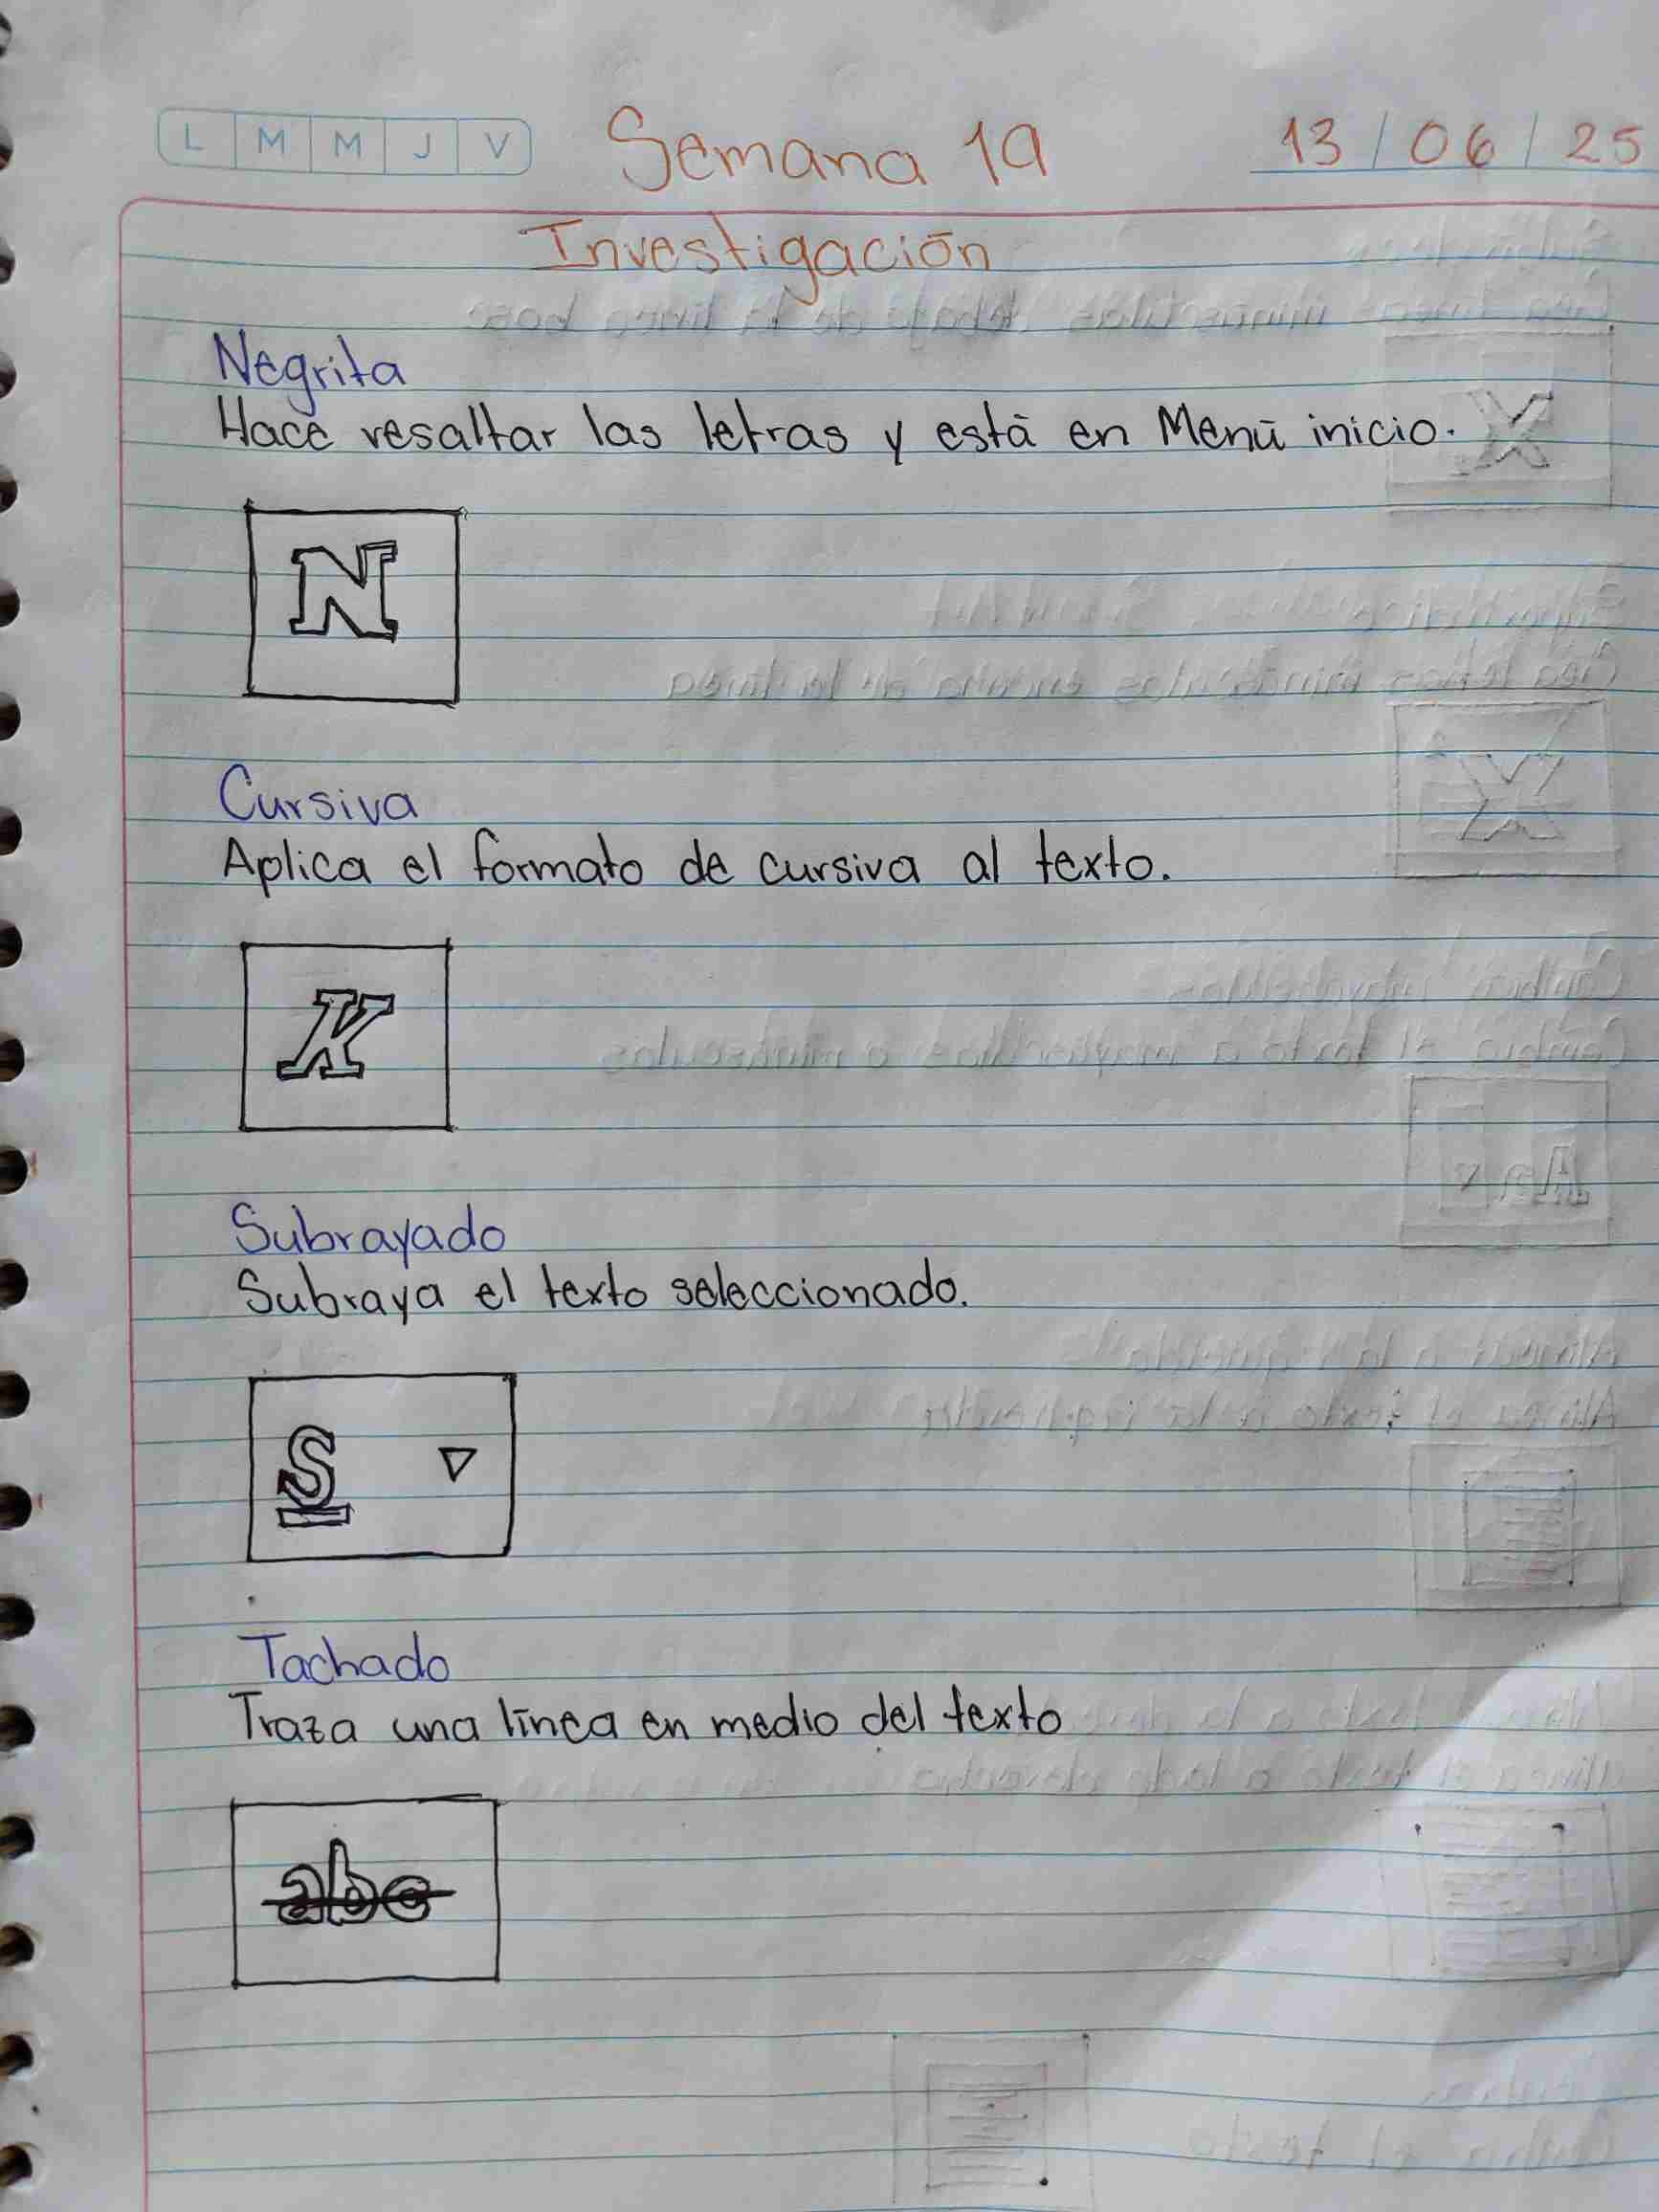 L M M J V
Semana 19
13/06/25
Investigación
Negrita
Hace resaltar las letras y está en Menú inicio.
N
Cursiva
Aplica el formato de cursiva al texto.
K
Subrayado
Subraya el texto seleccionado.
S
Tachado
Traza una línea en medio del texto
abc